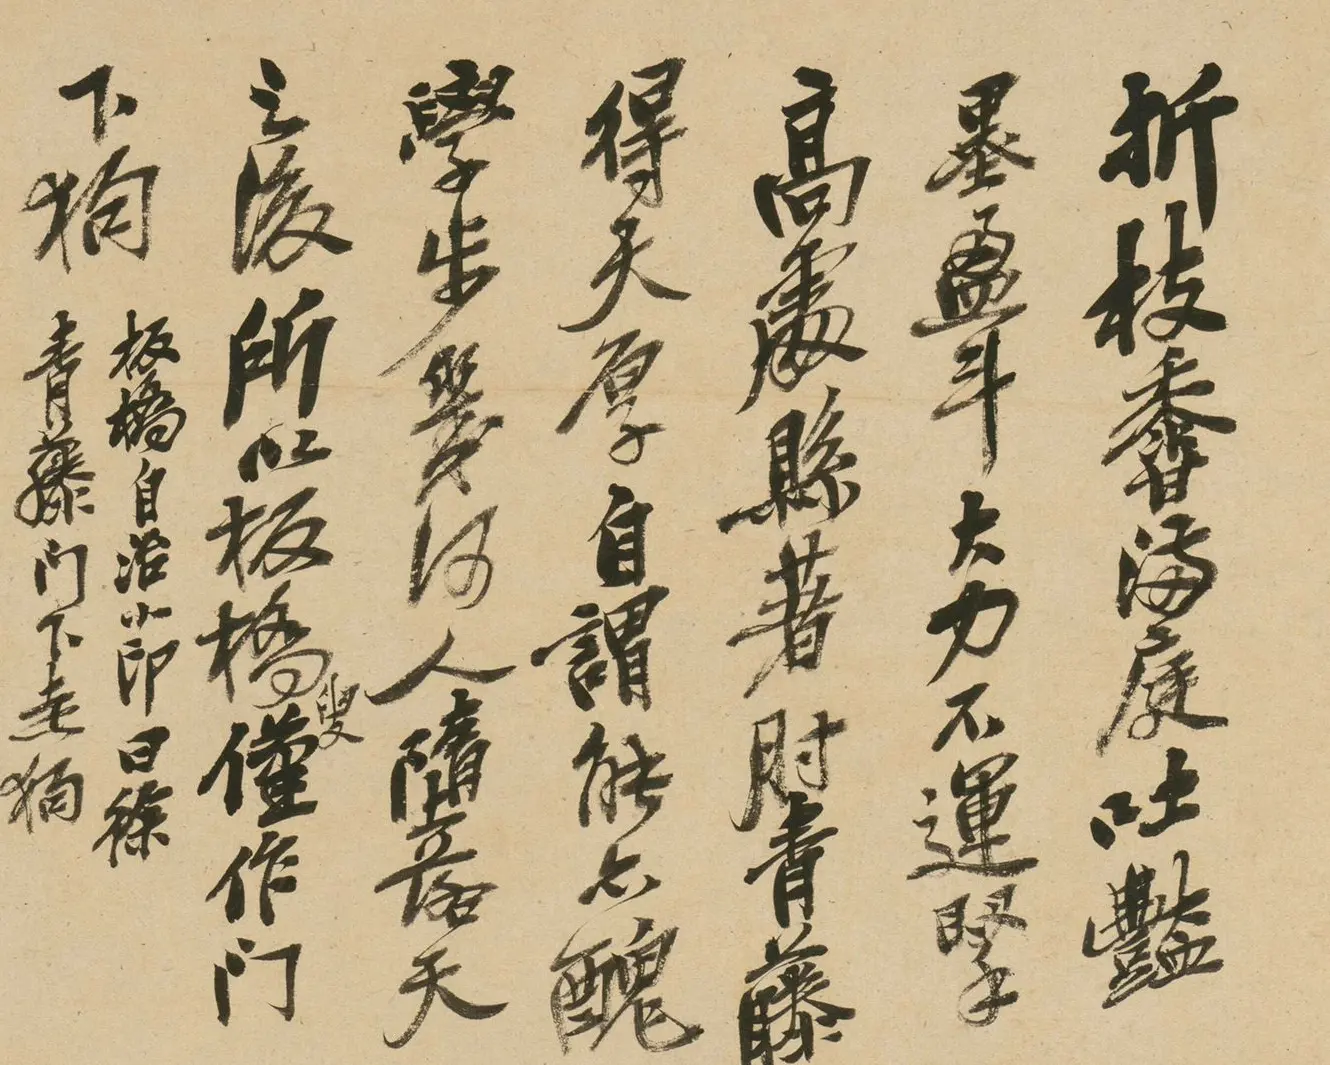 折枝香滿庭吐豔
墨盈斗大力不運掔
高處縣著肘青藤
得天厚自謂能亦醜
學步幾何人隋落天
之後所以板橋叟僅作門
下狗
板橋自治小印曰徐
青藤門下走狗